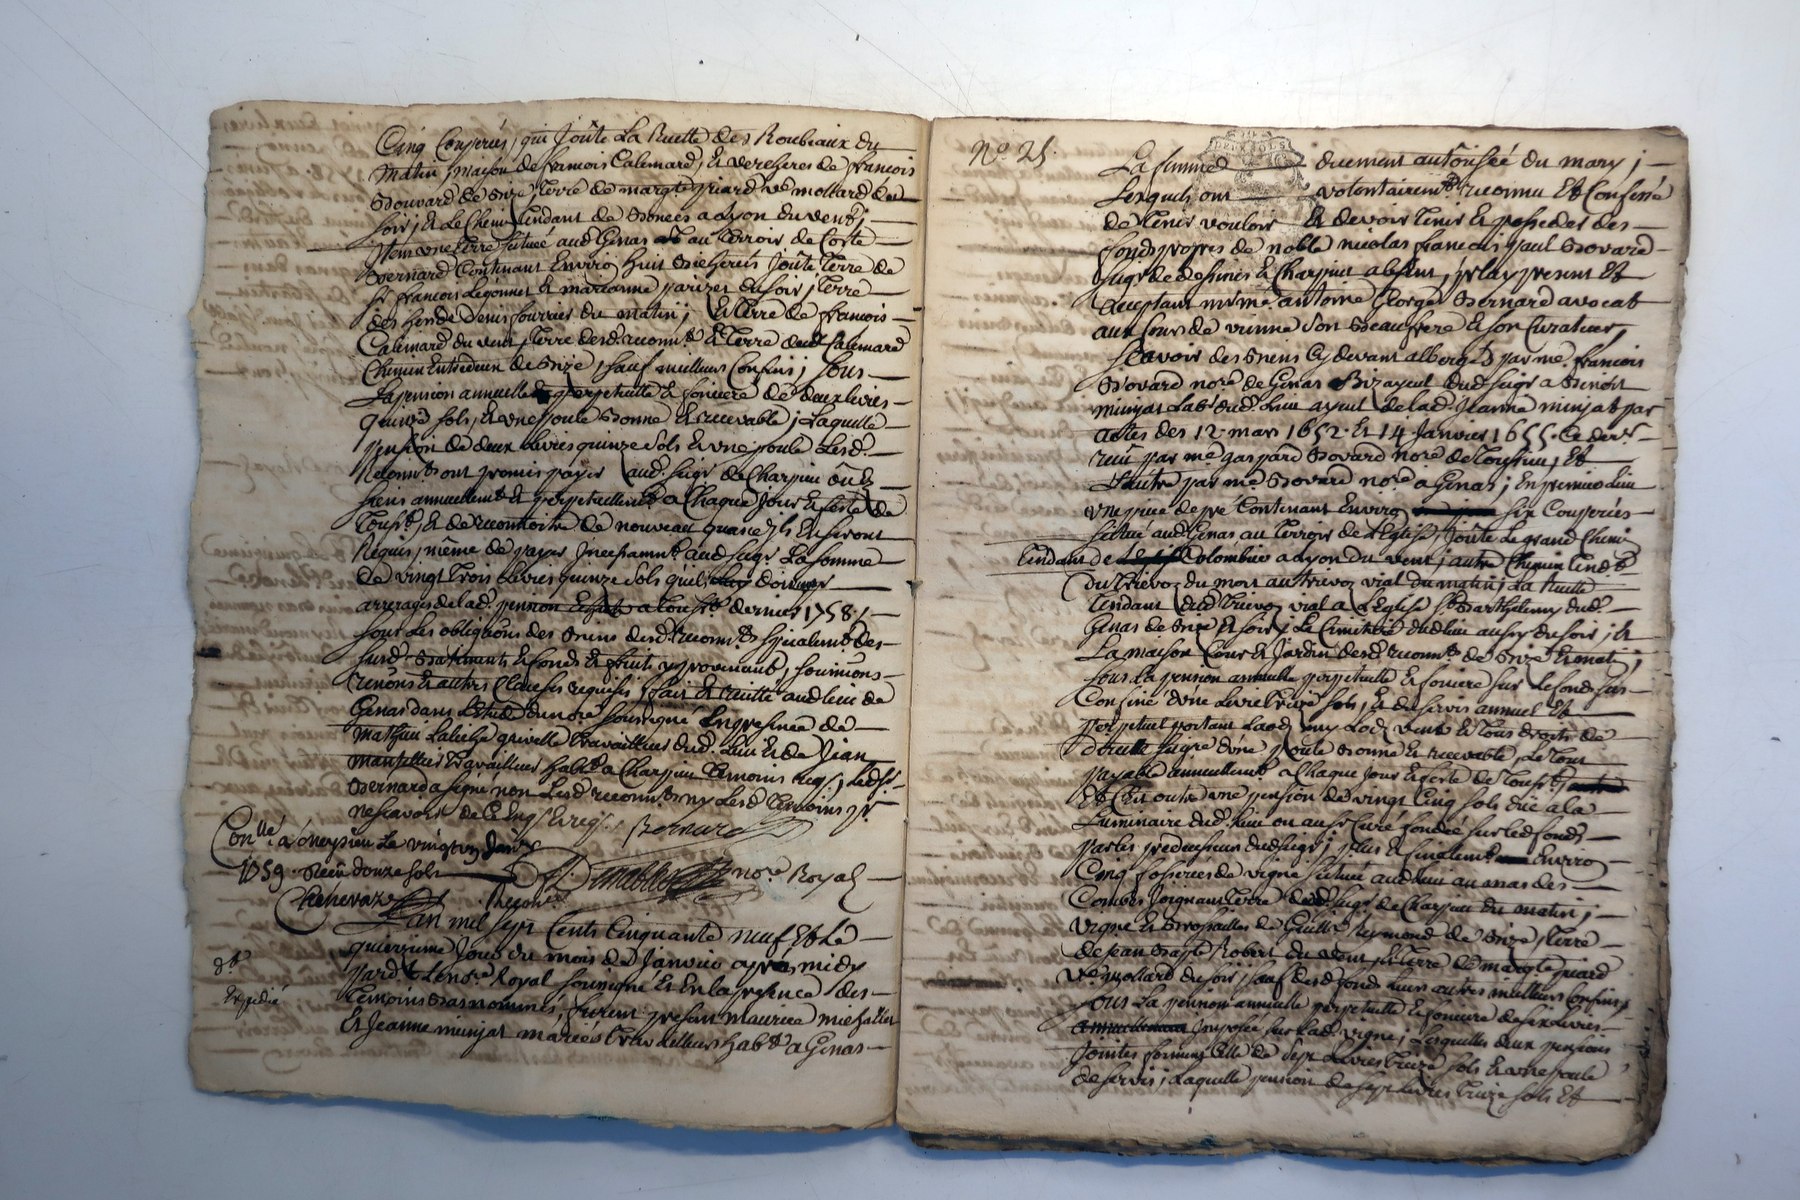 Cinq Couperées, qui Joûte La Ruette des Roubiaux du
matin, maison de francois Calemard, et vercheres de francois
Bouvard de Bize, terre de margte piard ve mollard du
soir, et Le Chemin tendant de Bonces a Lyon du vent;
Item une terre située aud Genas au terroir de Coste
Bernard Contenant Environ huit Bicherées Joûte terre de
Sr francois Legonnet et marianne parizet du soir, terre
des hers de Denis fournier du matin; et terre de francois
Calemard du vent, terre desd. reconnts et terre dud Calemard
Chemin Entredeux de Bize, sauf meilleurs Confins, sous
La pension annuelle perpetuelle et fonciere de deux livres
quinze sols, et une poule Bonne et recevable; Laquelle
pension de deux Livres quinze sols et une poule Lesd.
Reconnts ont promis payer aud. seigr de Charpieu ou és
siens annuellemt et perpetuellemt a Chaque Jour et feste de
Toussts, et de reconnoitre de nouveau quand ils En seront
Requis, même de payer Incessamt aud. seigr La somme
de vingt trois Livres quinze sols qu'ils doivent
arrerages de lad. pension a Toussts dernier 1758;
sous Les obligaons des Biens desd. reconnts specialemt des
susd. Batiments et fonds et fruits y provenants, soumissions
renons et autres Clauses requises, fait et recitté aud lieu de
Genas dans L'Etude du nore soussigné En presence de
mathieu travailleur dud. Lieu et de Jean
travailleur habt a Charpieu temoins reqs, Led Sr
Bernard a signé non Lesd reconnts ny Lesd temoins pr
ne scavoir de ce Enqs et reqs. Bernard
Conllé a meyzieu Le vingt
1759. Reçu douze sols nore Royal
Chenevaz
L'an mil sept Cents Cinquante neuf et Le
quinzieme Jour du mois de Janvier apres midy
pardt Le nore Royal soussigné et En la presence des
temoins Bas nommés, furent presents maurice
Et Jeanne minjat mariés travailleurs habts a Genas
Expedié
No. 25.
La femme duement autorisée du mary;
Lesquels ont volontairemt reconnu et Confessé
de tenir vouloir et devoir tenir et posseder des
fonds propres de noble nicolas francois paul Bovard
seigr de et Charpieu absent, pr luy present et
acceptant me antoine George Bernard avocat
aux Cours de vienne son Beaufrere et son Curateur,
Scavoir des Biens Cy devant albergés par me francois
Bovard nore de Genas Bizayeul dud. seigr a Benoit
minjat Labr dud. Lieu ayeul de lad. Jeanne minjat par
actes des 12. mars 1652. et 14 Janvier 1655. Ce derr
reçu par me gaspard Bovard nore de Toussieu, et
L'autre par me Bovard nore a Genas; En premier Lieu
une piece de pré Contenant Environ six Couperées
située aud. Genas au terroir de L'Eglise, Joûte Le grand Chemin
tendant de Colombier a Lyon du vent; autre Chemin tendt
du Trievoz du mort au trievoz vial du matin; La Ruette
tendant dud Trievoz vial a L'Eglise St Barthelemy dud.
Genas de Bize et soir; Le Cimetiere dud Lieu aussy du soir; et
La maison Cour et Jardin desd. reconnts de Bize et matin;
sous La pension annuelle perpetuelle et fonciere sur Le fonds sus
Confiné d'une Livre treize sols, et de servis annuel et
perpetuel portant Laods my Lods vents et tous droits de
directe seigre d'une poule Bonne et recevable, Le tout
payable annuellemt a Chaque Jour et feste de Toussts
et En outre une pension de vingt Cinq sols düe a la
Luminaire dud. Lieu ou au Sr Curé fondée sur led fonds
par les predecesseurs dud seigr; plus et finalemt Environ
Cinq fosserées de vigne située aud Lieu au mas des
Combes Joignant terre dud. seigr de Charpieu du matin;
vigne et Brossailles de Guillme Reymond de Bize, terre
de Jean Bapte Robert du vent, et terre de margte piard
ve mollard du soir, sauf desd fonds Leurs autres meilleurs Confins,
sous La pension annuelle perpetuelle et fonciere de six Livres
Imposée sur Lad. vigne; Lesquelles deux pensions
Jointes forment Celle de sept Livres treize sols et une poule
de servis; Laquelle pension de sept Livres treize sols et